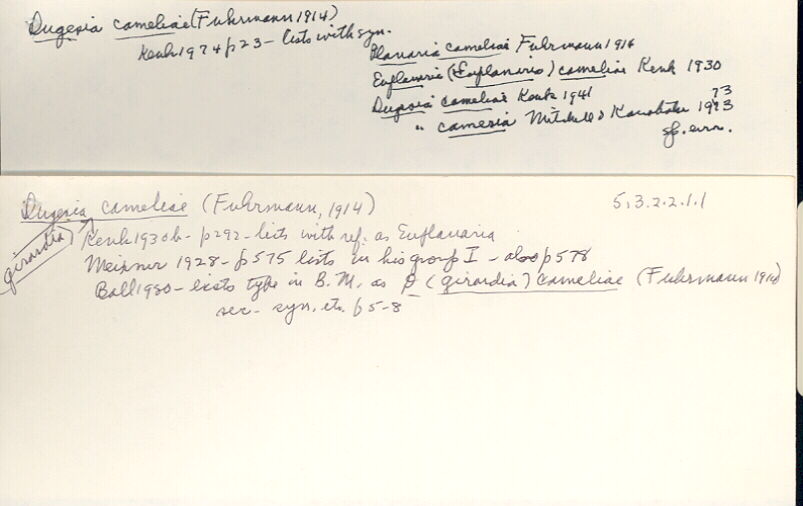 Dugesia cameliae (Fuhrmann 1914)
Kenk 1974 p 23 - lists with syn.
Planaria cameliae Fuhrmann 1914
Euplanaria (Euplanaria) cameliae Kenk 1930
Dugesia cameliae Kenk 1941
" camesia Mitchell & Kawakatsu 1973
73
sp. err.
Dugesia cameliae (Fuhrmann, 1914) 5.3.2.2.1.1
(girardia) Kenk 1930b - p 292 - lists with ref. as Euplanaria
Meixner 1928 - p 575 lists in his group I - also p 578
Ball 1980 - lists type in B.M. as D (girardia) cameliae (Fuhrmann 1914)
see - syn. etc. p 5-8